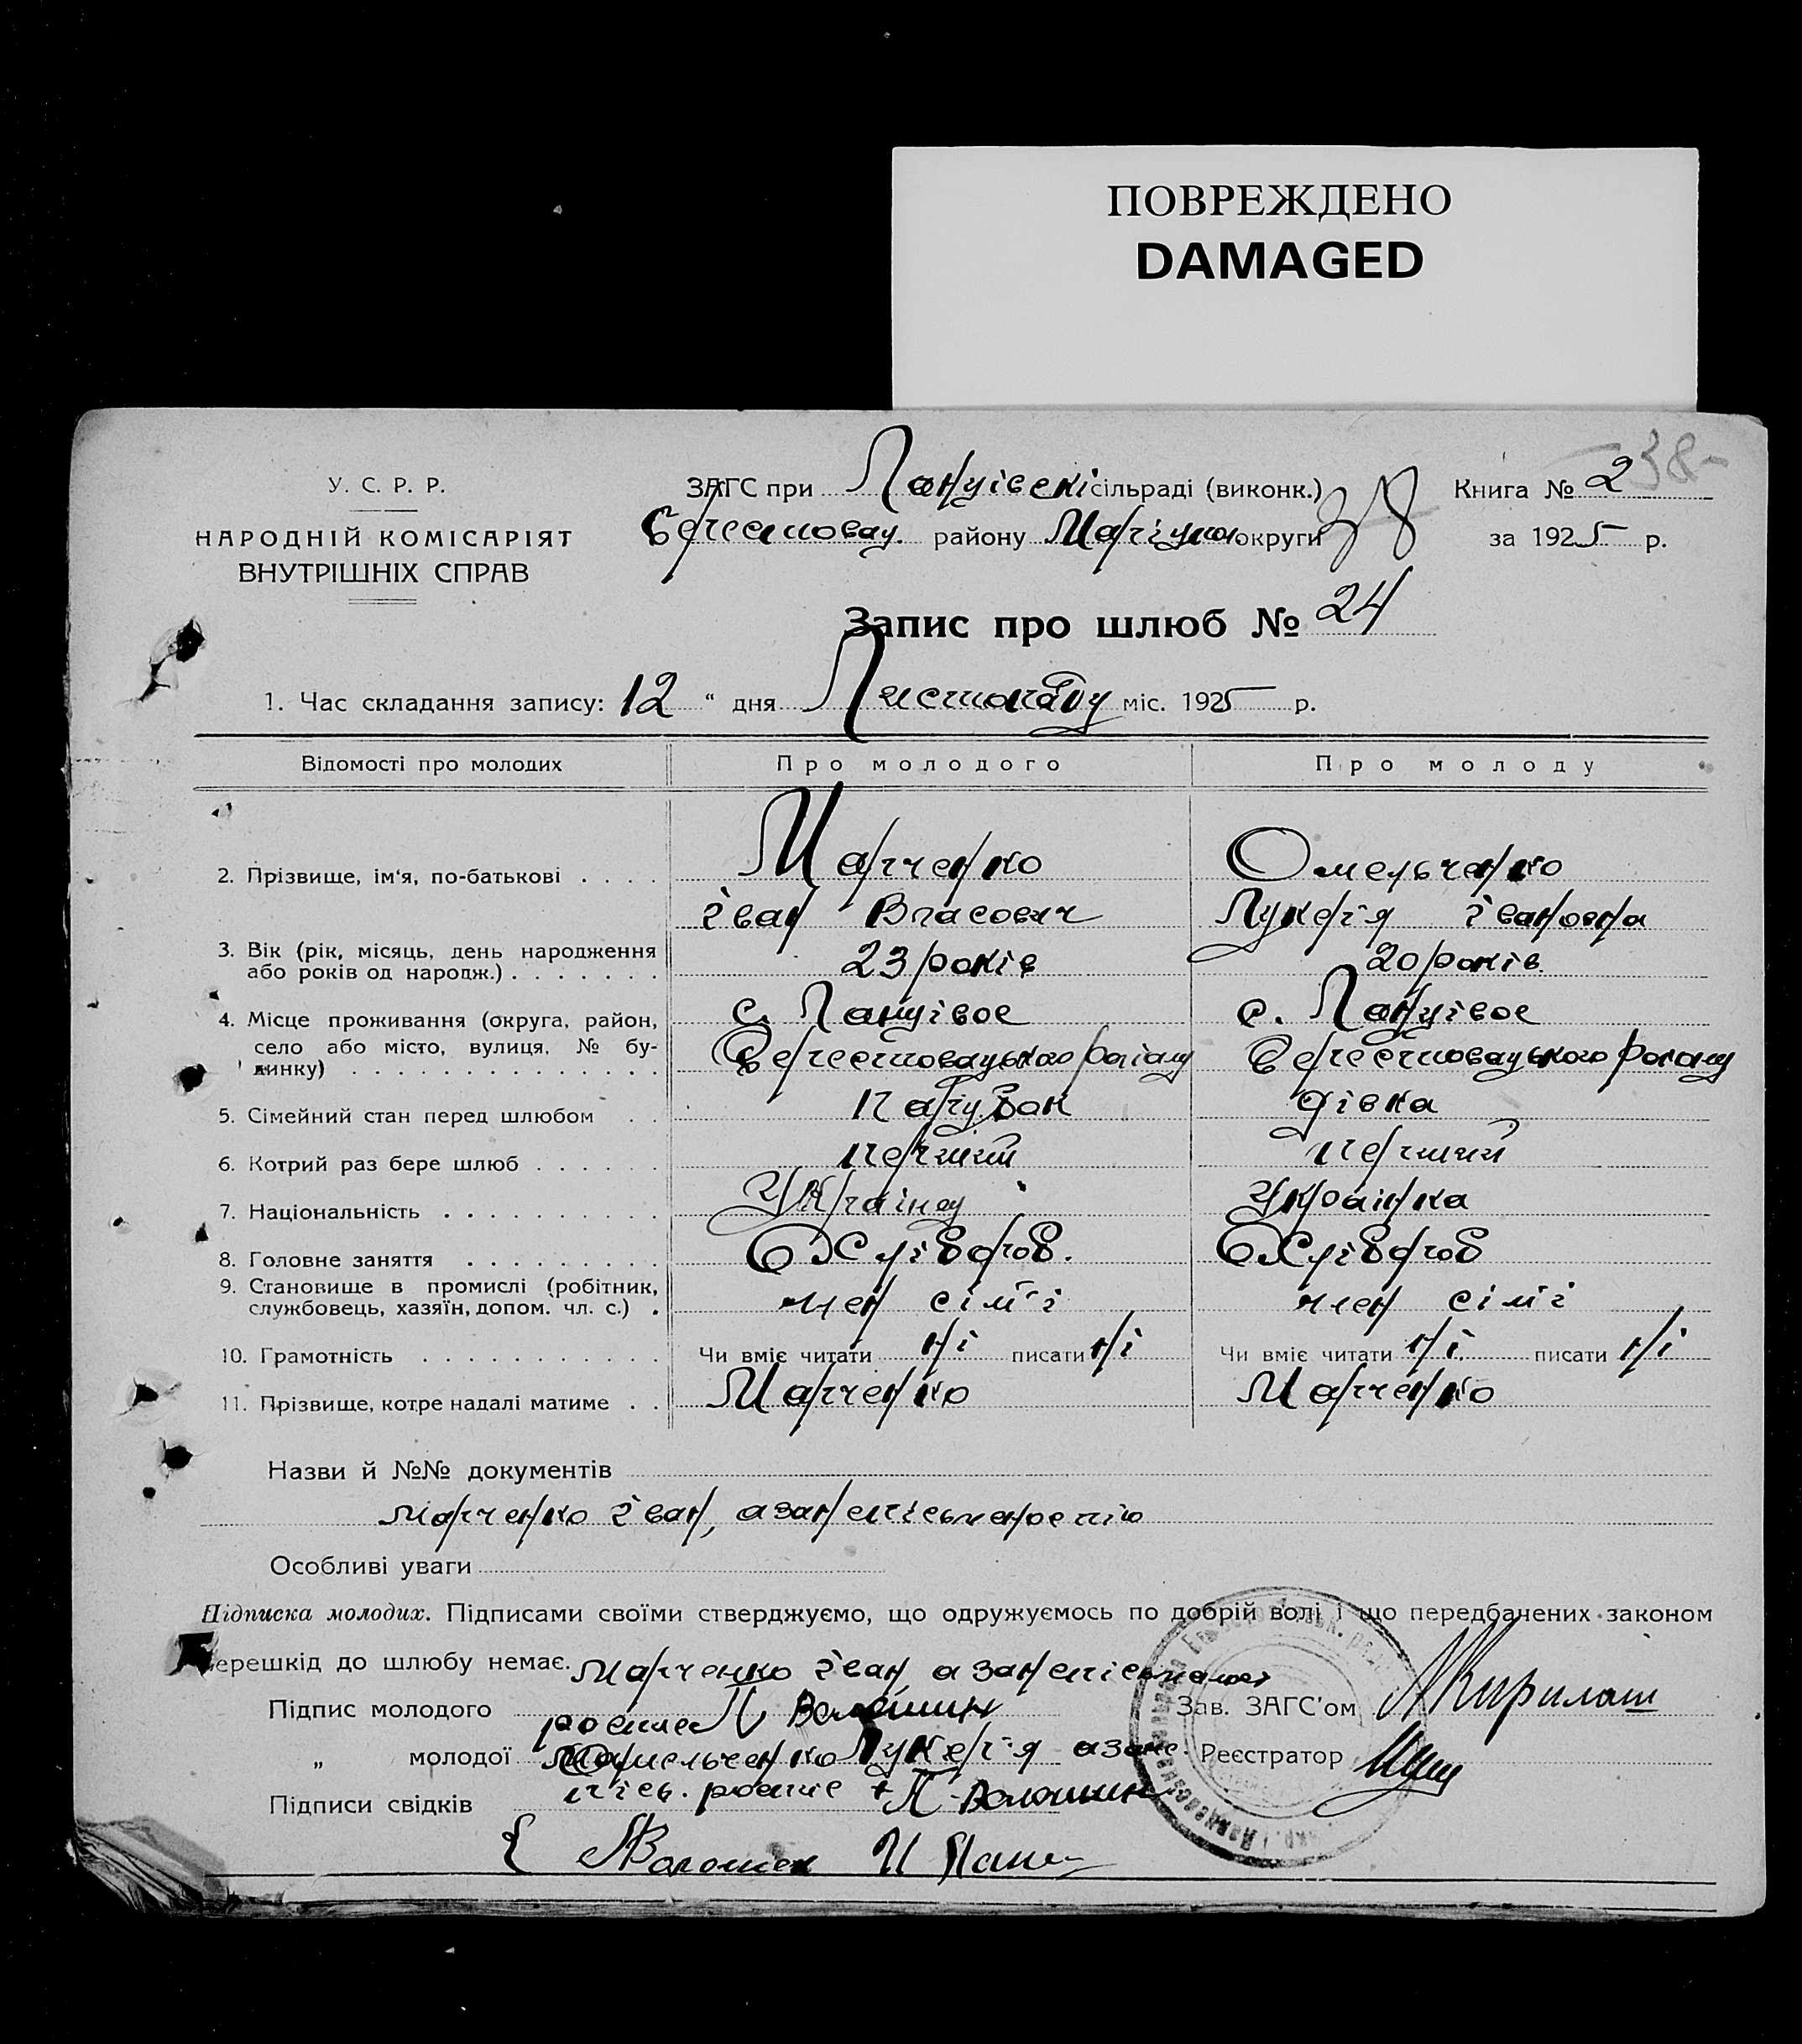 ПОВРЕЖДЕНО
DAMAGED
38
У. С. Р. Р.
НАРОДНІЙ КОМІСАРІЯТ
ВНУТРІШНІХ СПРАВ
ЗАГС при Ланцівські сільраді (виконк.)
району округи 38
Книга № 2
за 1925 р.
Запис про шлюб № 24
1. Час складання запису: 12 " дня Листопаду міс. 1925 р.
Відомості про молодих Про молодого Про молоду
2. Прізвище, ім'я, по-батькові . . . . Марченко Омельченко
Іван Власович Лукерія Івановна
3. Вік (рік, місяць, день народження
або років од народж.) . . . . . . . 23 років 20 років
4. Місце проживання (округа, район,
село або місто, вулиця, № бу-
динку) . . . . . . . . . . . . . .
с. Ланцівое с. Ланцівое
5. Сімейний стан перед шлюбом . . Парубок дівка
6. Котрий раз бере шлюб . . . . . . перший перший
7. Національність . . . . . . . . . . Українец Українка
8. Головне заняття . . . . . . . . . Хлібороб. Хлібороб
9. Становище в промислі (робітник,
службовець, хазяїн, допом. чл. с.) . член сім'ї член сім'ї
10. Грамотність . . . . . . . . . . . Чи вміє читати ні писати ні Чи вміє читати ні писати ні
11. Прізвище, котре надалі матиме . . Марченко Марченко
Назви й №№ документів
Марченко Іван, а за
Особливі уваги
Підписка молодих. Підписами своїми стверджуємо, що одружуємось по добрій волі і що передбачених законом
перешкід до шлюбу немає. Марченко Іван а за
Підпис молодого Волошин Зав. ЗАГС'ом
" молодої Омельченко Лукерія а за Реєстратор
Підписи свідків Волошин